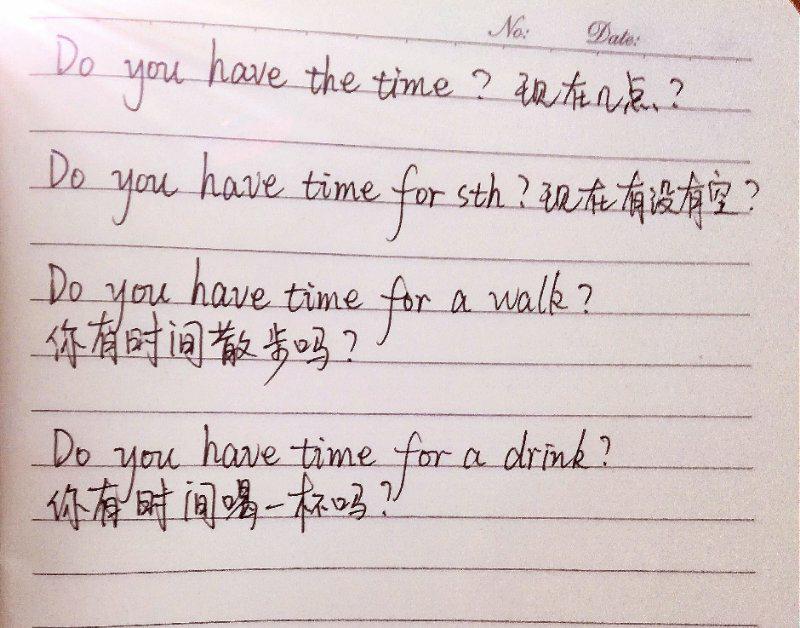 No: Date:
Do you have the time? 现在几点?
Do you have time for sth? 现在有没有空?
Do you have time for a walk?
你有时间散步吗?
Do you have time for a drink?
你有时间喝一杯吗?